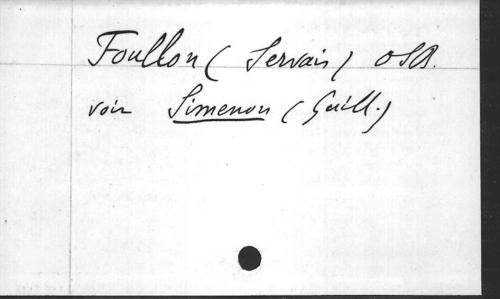 Foullon ( Servais ) OSB.
voir Simenon ( Guill. )